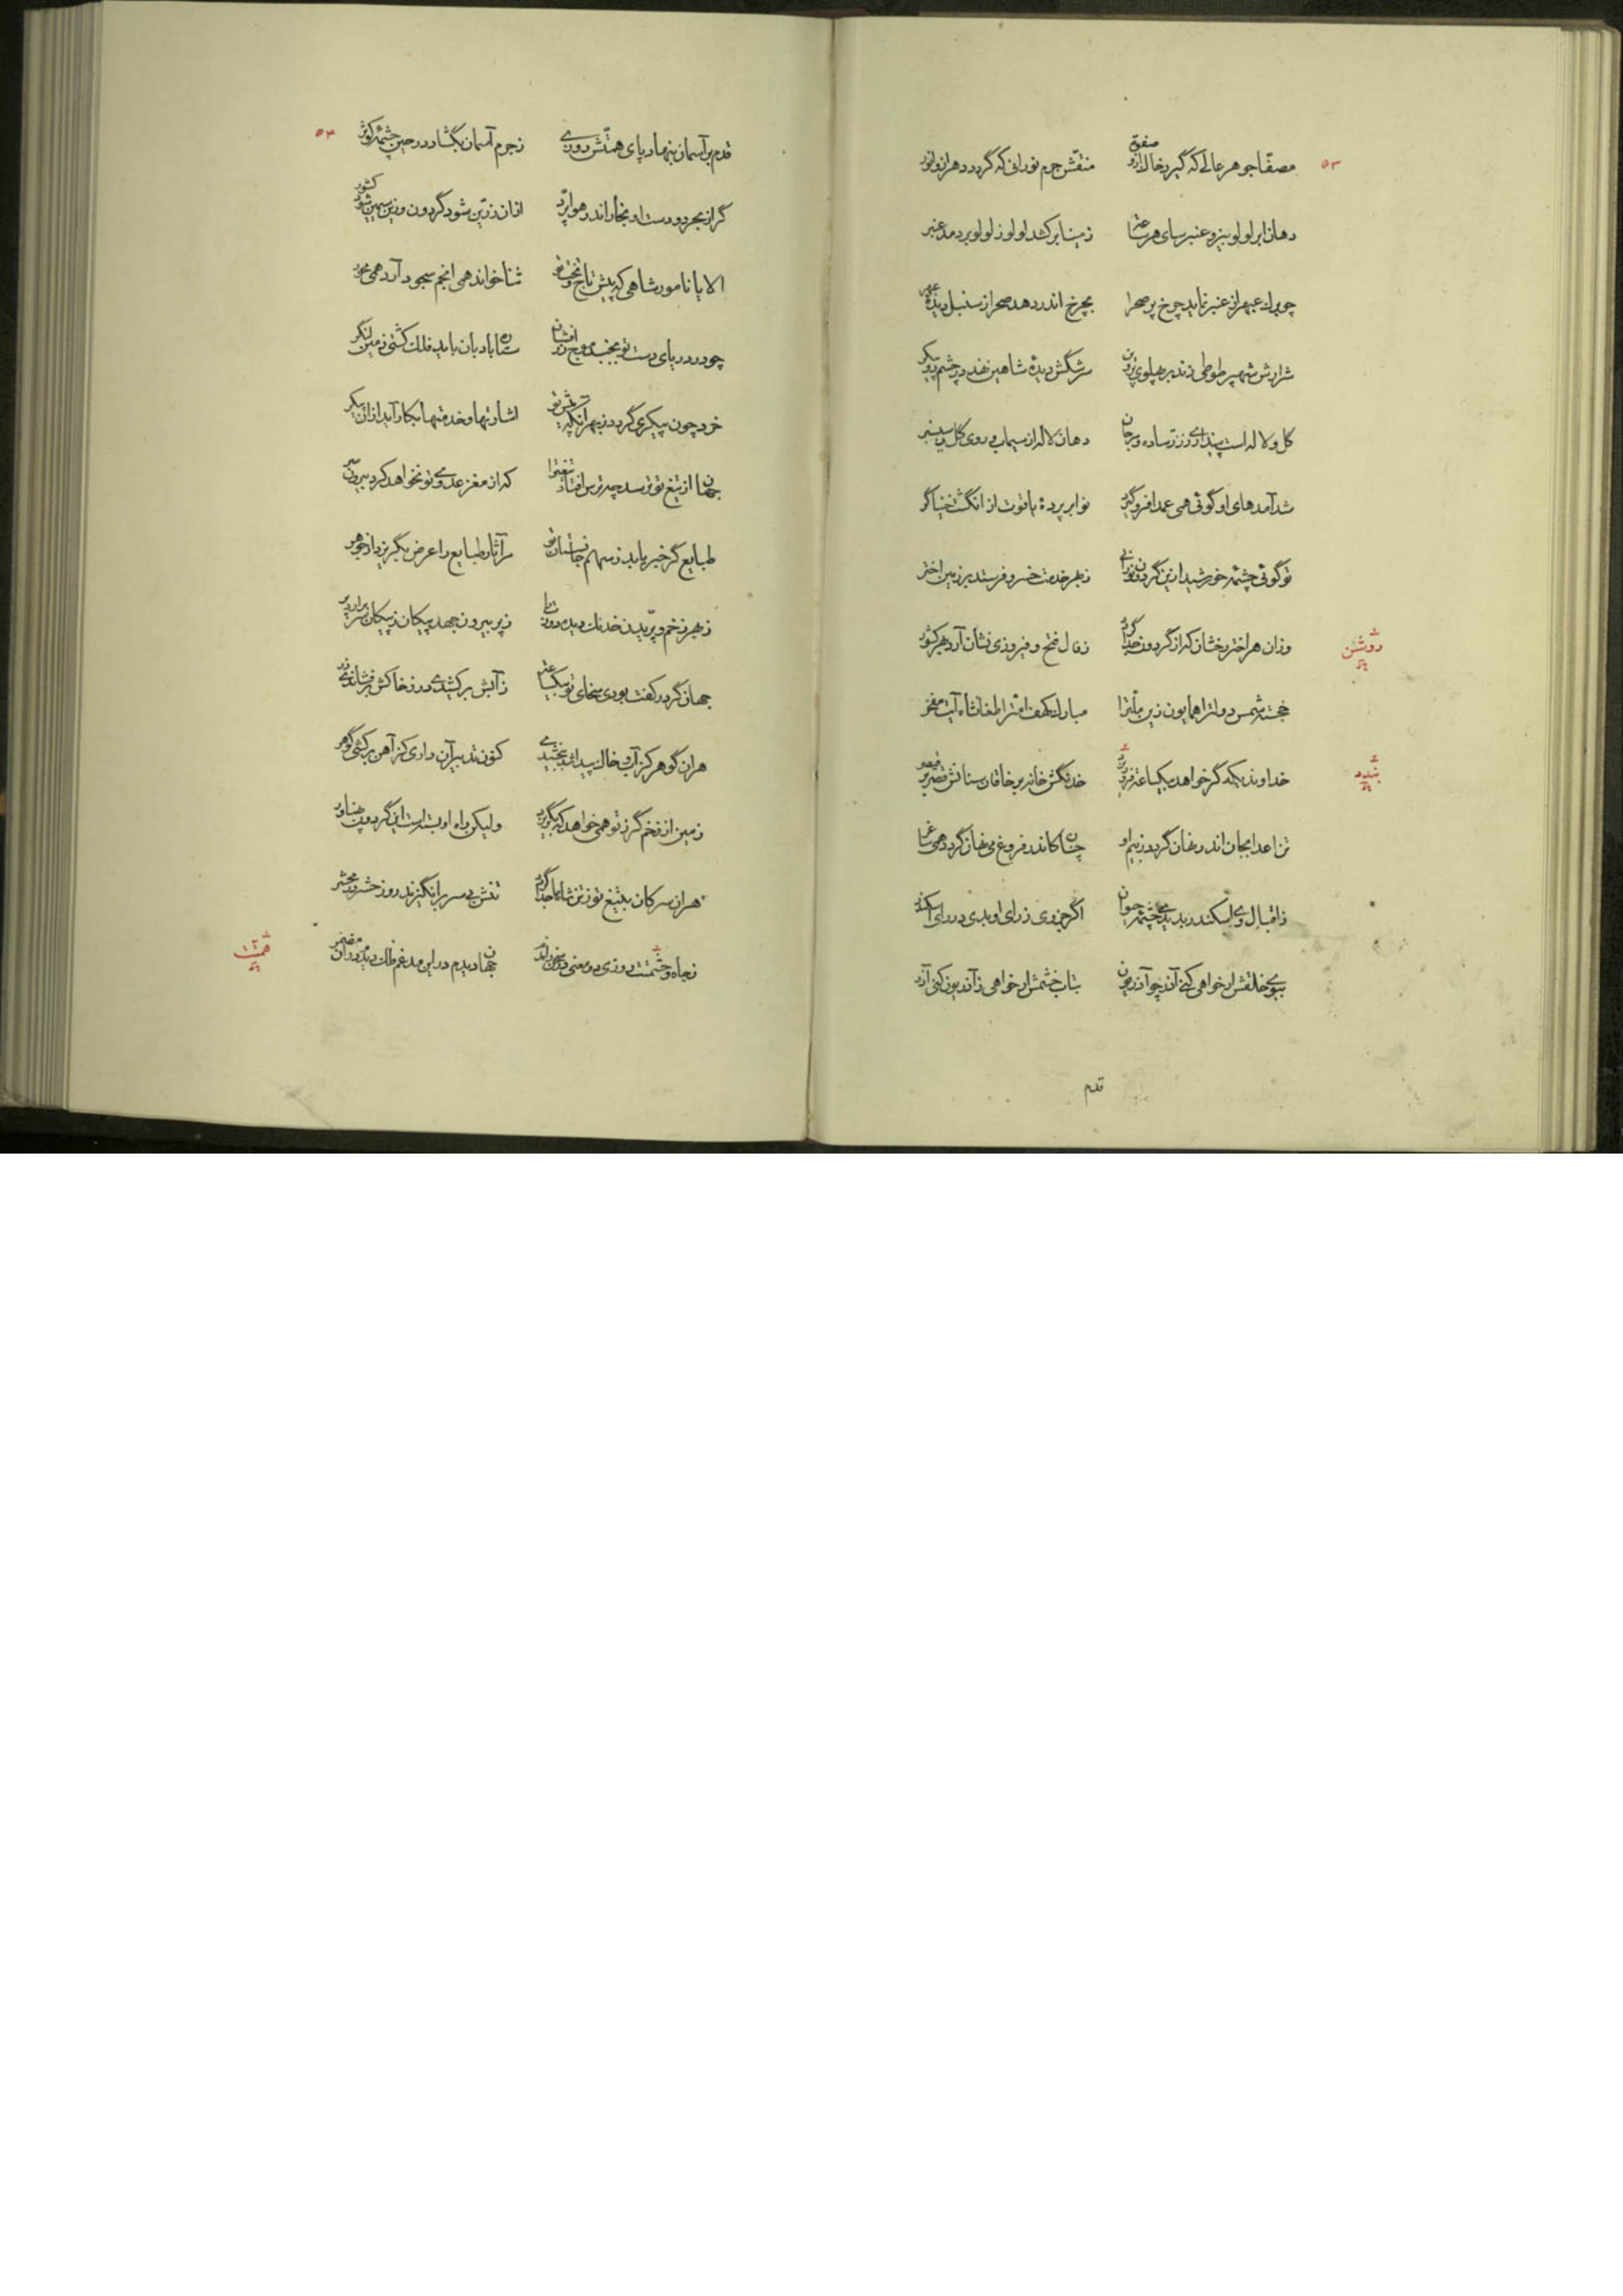 ۵۳
مصفّا جوهر عالی که گیرد خاک ازو صفوت منقّش جرم نورانی که گردد دهر ازو انور
دهان ابر لولو بیز و عنبرسای هر ساعت ز مینا برکشد لولو ز لولو بردمد عنبر
چو برك عبهر از عنبر نماید چرخ پر صحرا بچرخ اندر دهد صحرا ز سنبل دیدهٔ عبهر
شرارش شهپر طوطی زند بر پهلوی پروین سرشگش دیدهٔ شاهین نهد در چشم دو پیکر
گل و لاله است پنداری ز زرّ ساده و مرجان دهان لاله از سیماب روی گل
شد آمدهای او گوئی همی عمدا فرو گیرد نوا بر پردهٔ یاقوت از انگشت خنیاگر
تو گوئی چشمهٔ خورشید ازین گردون نورانی ز بهر خدمت خسرو فرستد بر زمین اختر
وزان هر اختر رخشان که از گردون جدا گردد ز فال فتح و فیروزی نشان آرد بهر کشور
روشن
خجسته شمس دولترا همایون زین ملّترا مبارك کهف امّترا طغانشاه آیت مفخر
خداوندیکه گر خواهد بیکساعت فرو بندد خدنگش خانه بر خاقان سنانش قصر بر قیصر
بندد
تن اعدا بجان اندر نهان گردد ز بیم او چنان کاندر فروغ می نهان گردد همی ساغر
ز اقبال وی اسکندر بدیدی چشمه حیوان اگر جزوی ز رای او بدی در رای اسکندر
ببوی خلقش ار خواهی کنی آذر چو آذریون بتاب خشمش ار خواهی ز آذریون کنی آذر
قدم
۵۴
قدم بر آسمان بنهاد پای همّتش روزی ز جرم آسمان بگشاد در حین چشمهٔ کوثر
گر از بحر دو دست او بخار اندر هوا پرّد ازان زرّین شود گردون وزین سیمین شود کشور
الا یا نامور شاهی که پیش تاج و تخت تو ثنا خواند همی انجم سجود آرد همی محور
چو در دریای دست تو بجنبد موج زر افشان ستاره بادبان باید فلك کشتی زمین لنگر
خرد چون پیکری گردد ز بهر آنکه پیش تو اشارتها و خدمتها بکار آید ازان پیکر
جهان از تیغ تو ترسد چه ترس افتاد تیغترا که از مغز عدوی تو نخواهد کرد بیرون سر
طبایع گر خبر یابد ز سهم جانستان تو ز آثار طبایع را عرض بگریزد از جوهر
ز بهر زخم و پرّیدن خدنك دیده دوزت را ز پر بیرون جهد پیکان ز پیکان سر برآرد پر
جهان گر در کفت بودی سخای تو بیکساعت ز آبش برکشیدی در ز خاکش برفشاندی زر
هر آن گوهر کز آب و خاك پیدا شد ببخشیدی کنون تدبیر آن داری کز آهن برکشی گوهر
زمین از زخم گرز تو همی خواهد که بگریزد ولیکن راه او بسته است این گردون پهناور
هر آن سر کان بتیغ تو ز تن شاها جدا گردد تنش بی سر برانگیزند روز حشر در محشر
ز جاه و حشمتت روزی دو معنی در سخن راندم جهان دیدم در این مدغم فلك دیدم در آن مضمر
همّت